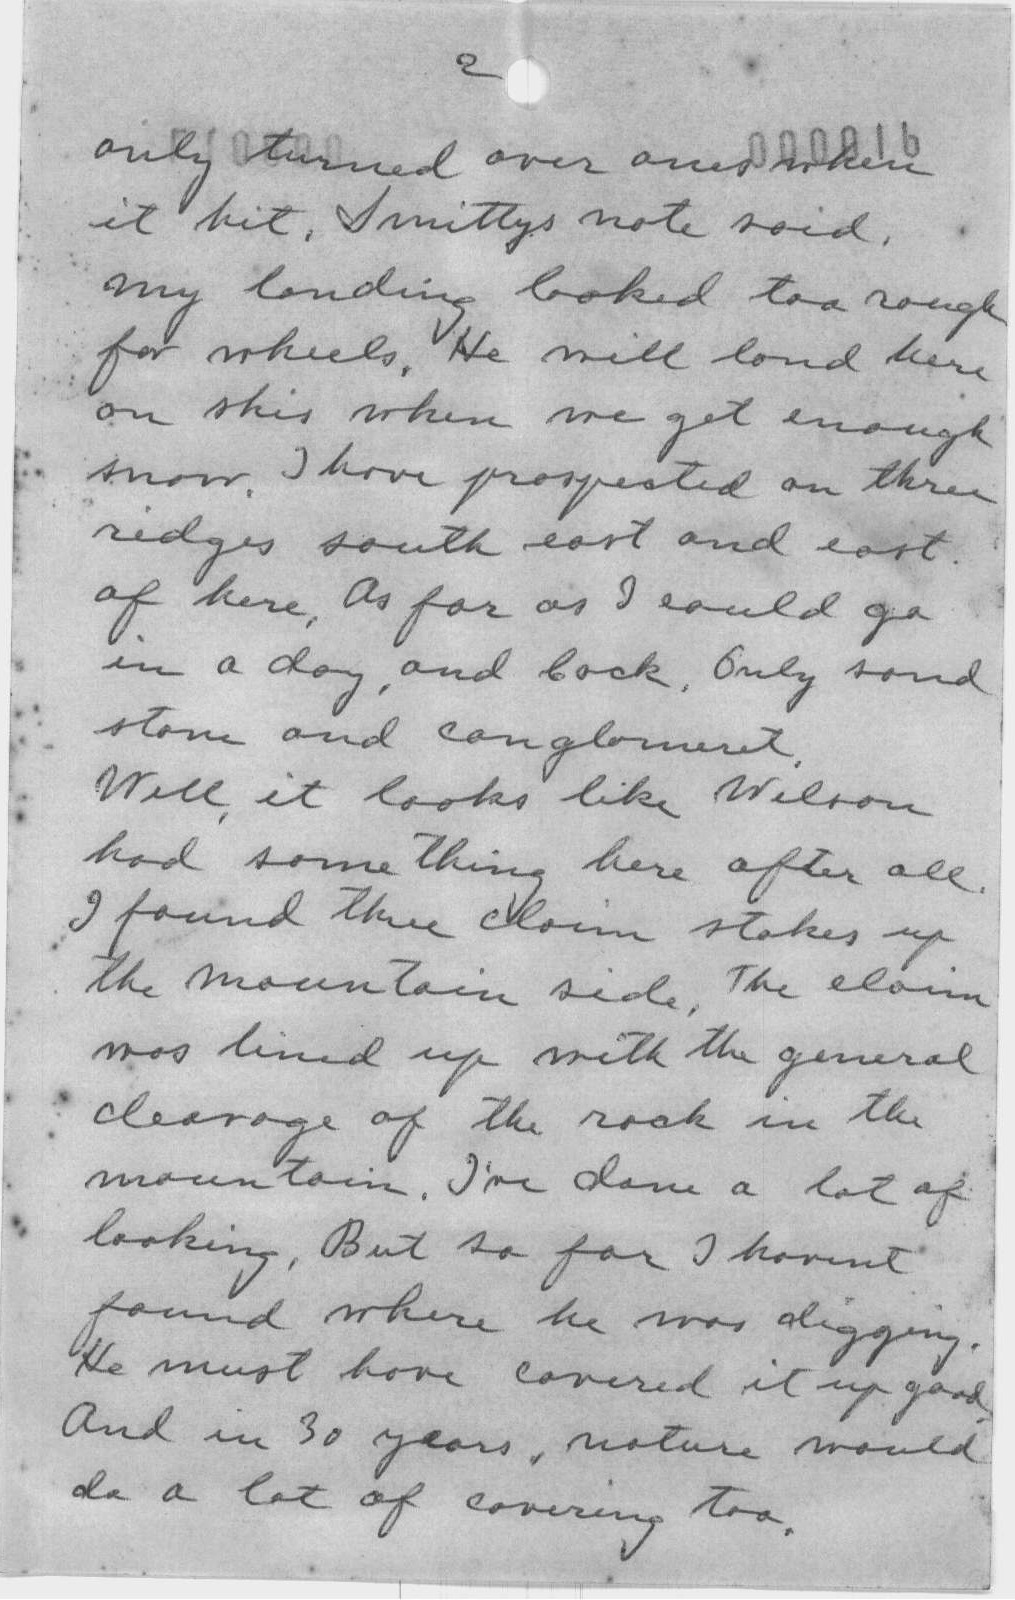 2
000016
only turned over ones when
it hit. Smittys note said.
my landing looked too rough
for wheels. He will land here
on skis when we get enough
snow. I have prospected on three
ridges south east and east.
of here. As far as I could go
in a day, and back. Only sand
stone and conglomeret.
Well, it looks like Wilson
had some thing here after all.
I found three claim stakes up
the mountain side. The claim
was lined up with the general
cleavage of the rock in the
mountain. I've done a lot of
looking, But so far I havent
found where he was digging.
He must have covered it up good.
And in 30 years, nature would
do a lot of covering too.